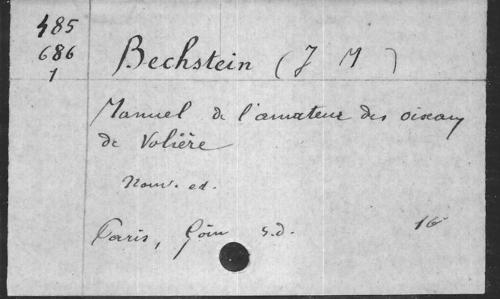 485
686
1
Bechstein (J M)
Manuel de l'amateur des oiseaux
de Volière
Nouv. ed.
Paris, Goin s.d. 16º